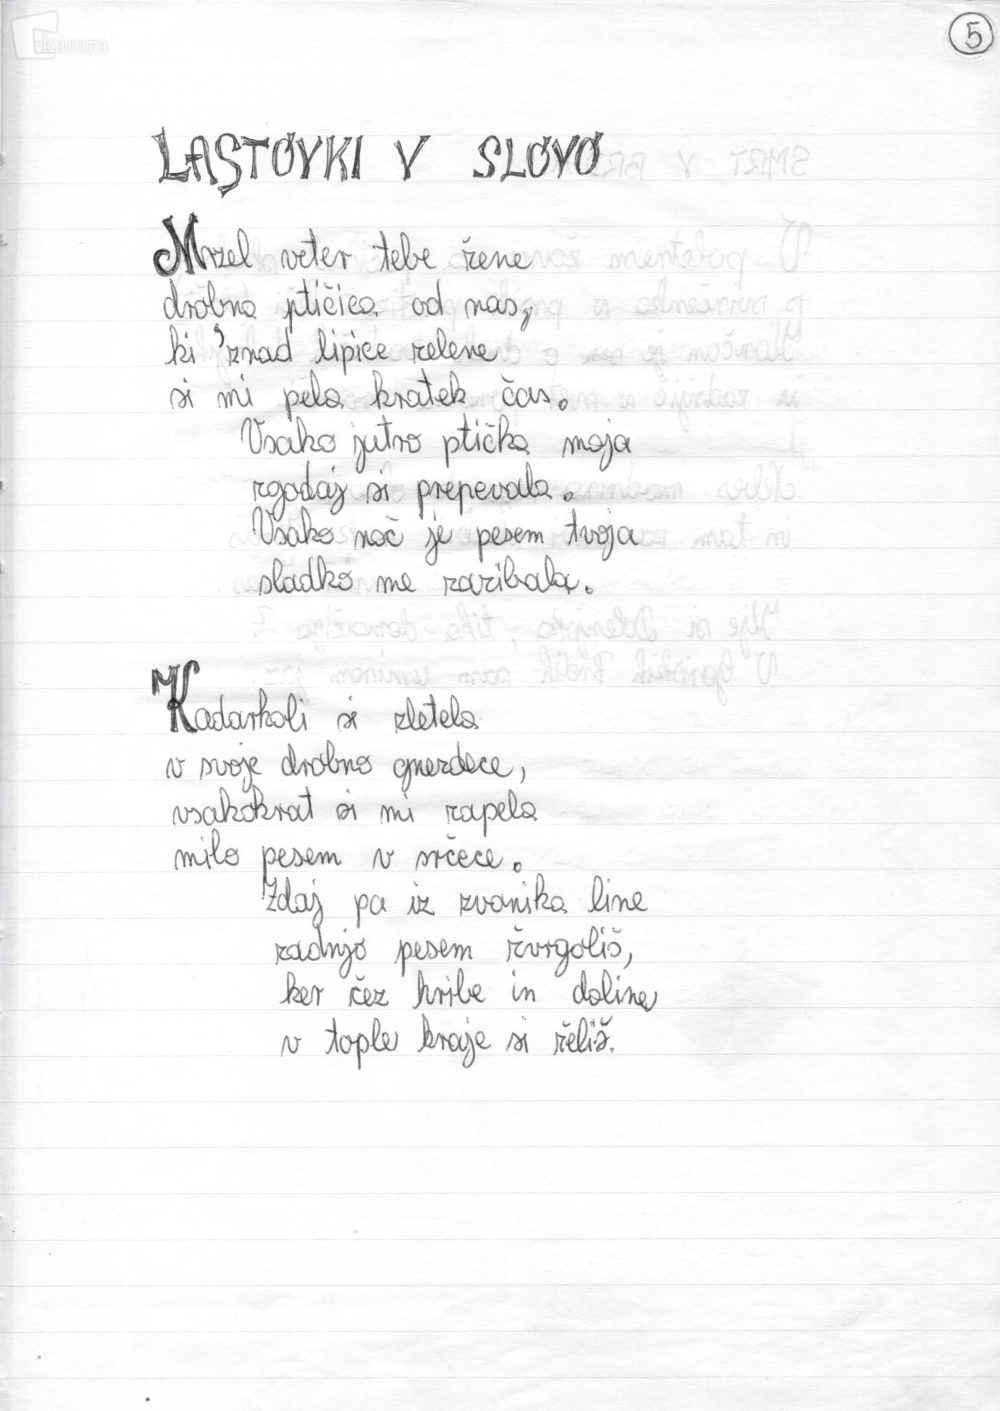 kamra
5
LASTOVKI V SLOVO
Mrzel veter tebe žene
drobna ptičica od nas,
ki 'znad lipice zelene
si mi pela kratek čas.
Vsako jutro ptička moja
zgodaj si prepevala.
Vsako noč je pesem tvoja
sladko me zazibala.
Kadarkoli si zletela
v svoje drobno gnezdece,
vsakokrat si mi zapela
milo pesem v srčece.
Zdaj pa iz zvonika line
zadnjo pesem žvrgoliš,
ker čez hribe in doline
v tople kraje si želiš.